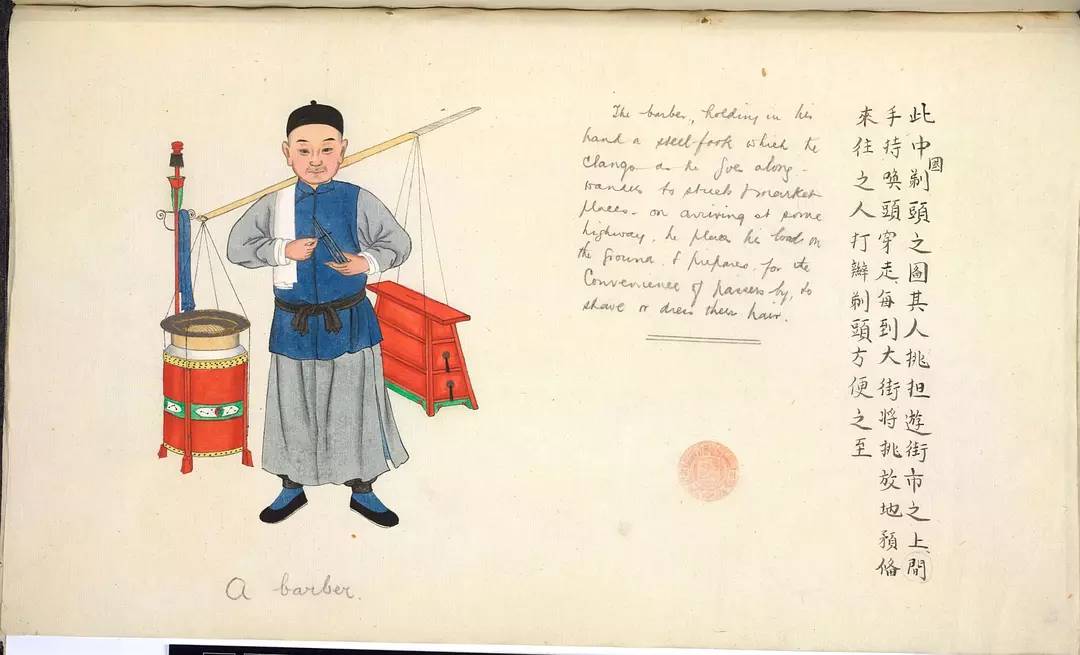 The barber, holding in his
hand a steel fork which he
clangs as he goes along -
wanders to streets & market
places. on arriving at some
highway, he places his load on
the ground. & prepares for the
Convenience of passers by, to
shave or dress their hair.
此中國剃頭之圖其人挑担遊街市之上間
手持喚頭穿走每到大街將挑放地預俻
來往之人打辮剃頭方便之至
A barber.